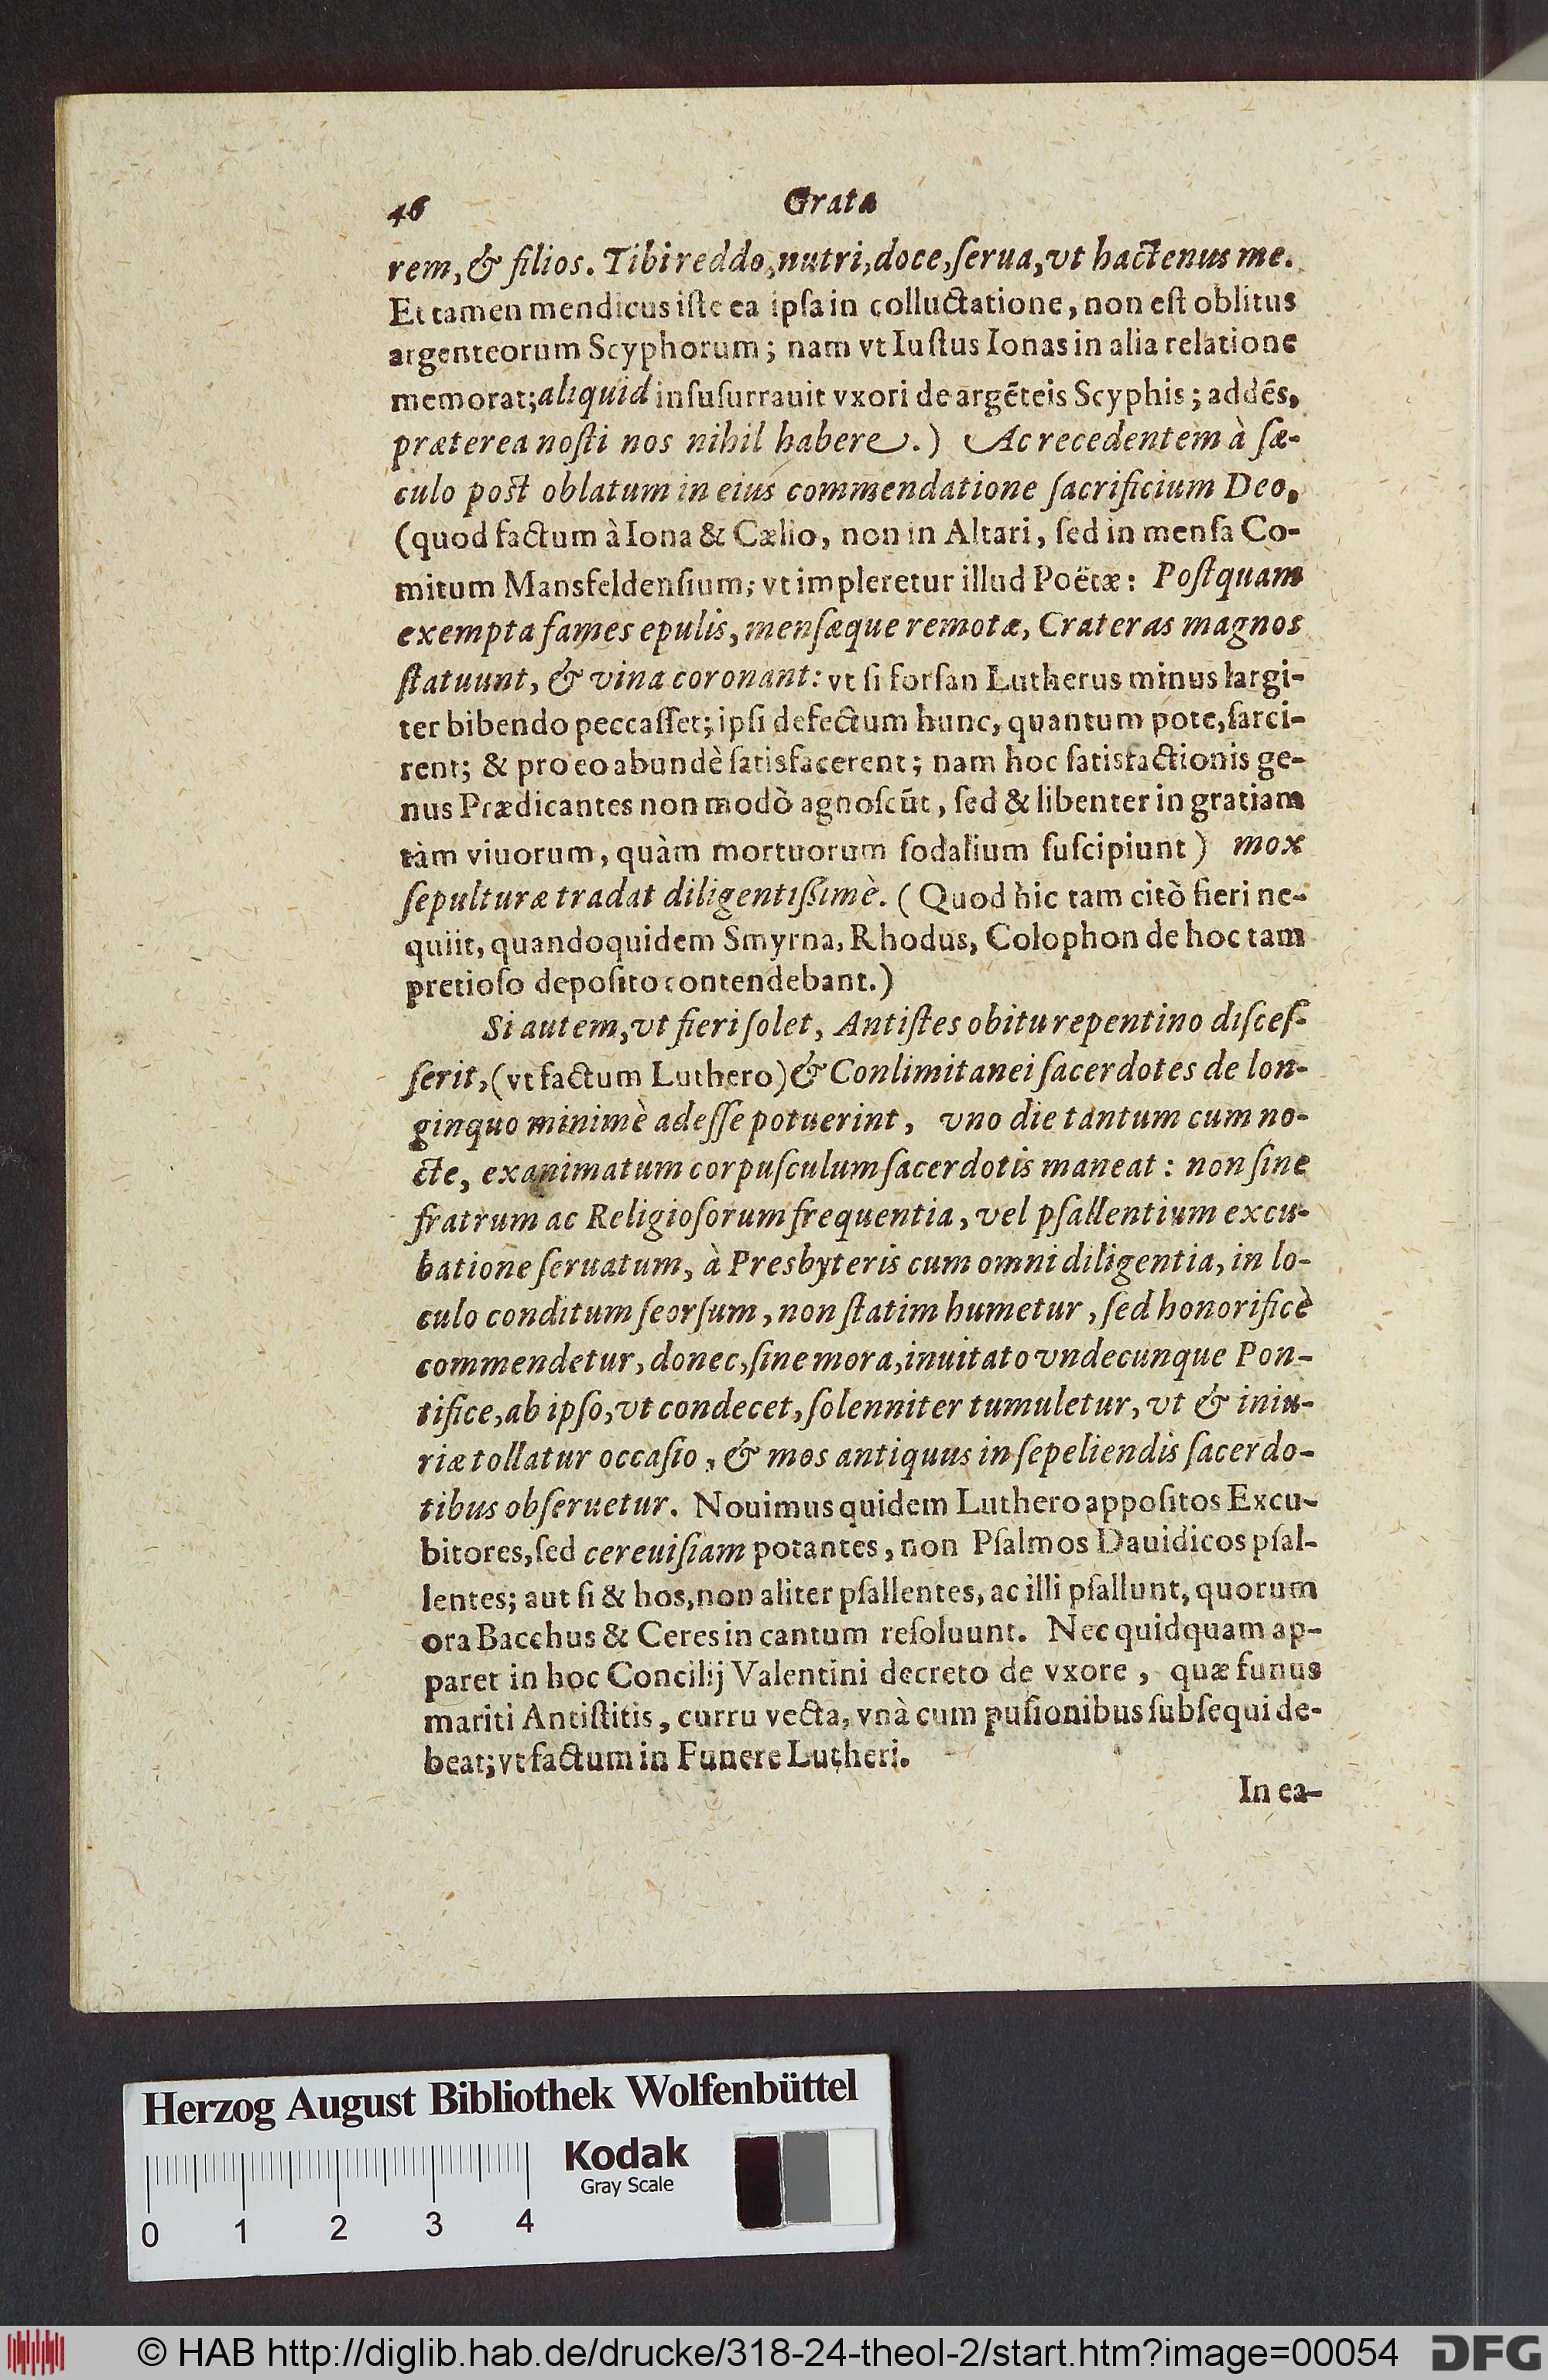 46 Grata
rem, & filios. Tibi reddo, nutri, doce, ſerua, vt hactenus me.
Et tamen mendicus iſte ea ipſa in colluctatione, non eſt oblitus
argenteorum Scyphorum; nam vt Iuſtus Ionas in alia relatione
memorat; aliquid inſuſurrauit vxori de argẽteis Scyphis; addẽs,
præterea noſti nos nihil habere.) Ac recedentem à ſæ-
culo poſt oblatum in eius commendatione ſacrificium Deo,
(quod factum à Iona & Cælio, non in Altari, ſed in menſa Co-
mitum Mansfeldenſium; vt impleretur illud Poëtæ: Poſtquam
exempta fames epulis, menſæque remotæ, Crateras magnos
ſtatuunt, & vina coronant: vt ſi forſan Lutherus minus largi-
ter bibendo peccaſſet; ipſi defectum hunc, quantum pote, ſarci-
rent; & pro eo abundè ſatisfacerent; nam hoc ſatisfactionis ge-
nus Prædicantes non modò agnoſcũt, ſed & libenter in gratiam
tàm viuorum, quàm mortuorum ſodalium ſuſcipiunt) mox
ſepulturæ tradat diligentiſſimè. (Quod hic tam citò fieri ne-
quiit, quandoquidem Smyrna, Rhodus, Colophon de hoc tam
pretioſo depoſito contendebant.)
Si autem, vt fieri ſolet, Antiſtes obitu repentino diſceſ-
ſerit, (vt factum Luthero) & Conlimitanei ſacerdotes de lon-
ginquo minimè adeſſe potuerint, vno die tantum cum no-
cte, exanimatum corpuſculum ſacerdotis maneat: non ſine
fratrum ac Religioſorum frequentia, vel pſallentium excu-
batione ſeruatum, à Presbyteris cum omni diligentia, in lo-
culo conditum ſeorſum, non ſtatim humetur, ſed honorificè
commendetur, donec, ſine mora, inuitato vndecunque Pon-
tifice, ab ipſo, vt condecet, ſolenniter tumuletur, vt & iniu-
riæ tollatur occaſio, & mos antiquus in ſepeliendis ſacerdo-
tibus obſeruetur. Nouimus quidem Luthero appoſitos Excu-
bitores, ſed cereuiſiam potantes, non Pſalmos Dauidicos pſal-
lentes; aut ſi & hos, non aliter pſallentes, ac illi pſallunt, quorum
ora Bacchus & Ceres in cantum reſoluunt. Nec quidquam ap-
paret in hoc Concilij Valentini decreto de vxore, quæ funus
mariti Antiſtitis, curru vecta, vnà cum puſionibus ſubſequi de-
beat; vt factum in Funere Lutheri.
In ea-
Herzog August Bibliothek Wolfenbüttel
Kodak
Gray Scale
0 1 2 3 4
© HAB http://diglib.hab.de/drucke/318-24-theol-2/start.htm?image=00054 DFG